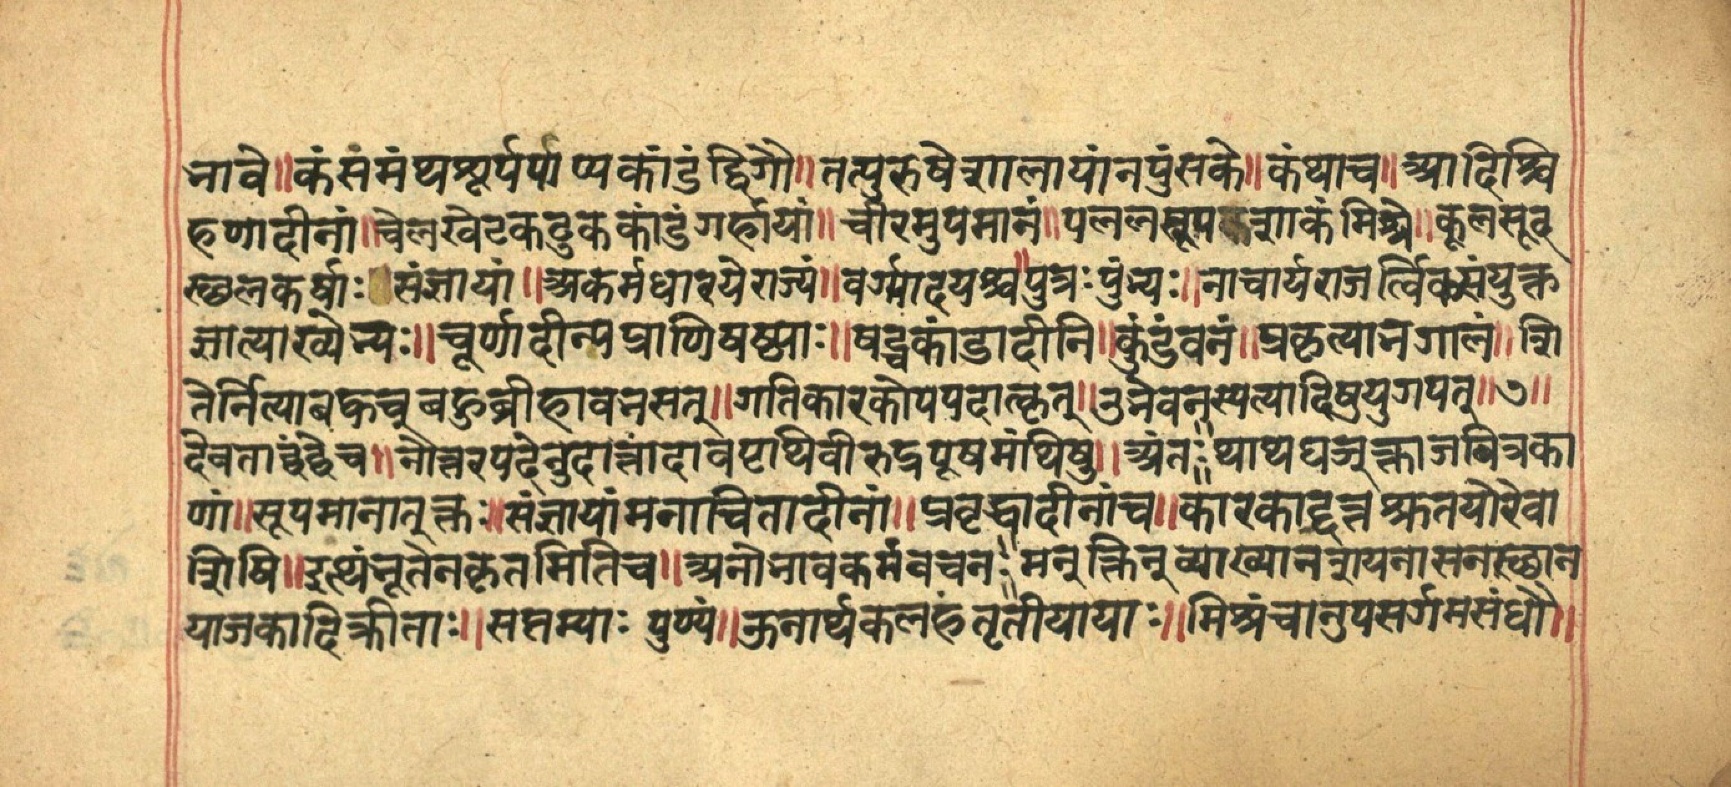 नावे॥कंसमंथशूर्पपाय्यकांडंद्विगौ॥तत्पुरुषेशालायांनपुंसके॥कंथाच॥आदिश्चि
हणादीनां॥चेलखेटकटुककांडंगर्हायां॥चीरमुपमानं॥पललसूपशाकंमिश्रे॥कूलसूद
स्थलकर्षाः संज्ञायां॥अकर्मधारयेराज्यं॥वर्ग्यादयश्च॥पुत्रःपुंभ्यः॥नाचार्यराजर्त्विक्संयुक्त
ज्ञात्याख्येभ्यः॥चूर्णादीन्यप्राणिषष्ठ्याः॥षट्चकांडादीनि॥कुंडंवनं॥प्रकृत्याभगालं॥शि
तेर्नित्याबह्वच्बहुव्रीहावभसत्॥गतिकारकोपपदात्कृत्॥उभेवनस्पत्यादिषुयुगपत्॥७॥
देवताद्वंद्वेच॥नोत्तरपदेनुदात्तादावपृथिवीरुद्रपूषमंथिषु॥अंतः॥थाथघञ्क्ताजबित्रका
णां॥सूपमानात्क्तः॥संज्ञायामनाचितादीनां॥प्रवृद्धादीनांच॥कारकाद्दत्तश्रुतयोरेवा
शिषि॥इत्थंभूतेनकृतमितिच॥अनोभावकर्मवचनः॥मन्क्तिन्व्याख्यानशयनासनस्थान
याजकादिक्रीताः॥सप्तम्याः पुण्यं॥ऊनार्थकलहंतृतीयायाः॥मिश्रंचानुपसर्गमसंधौ॥